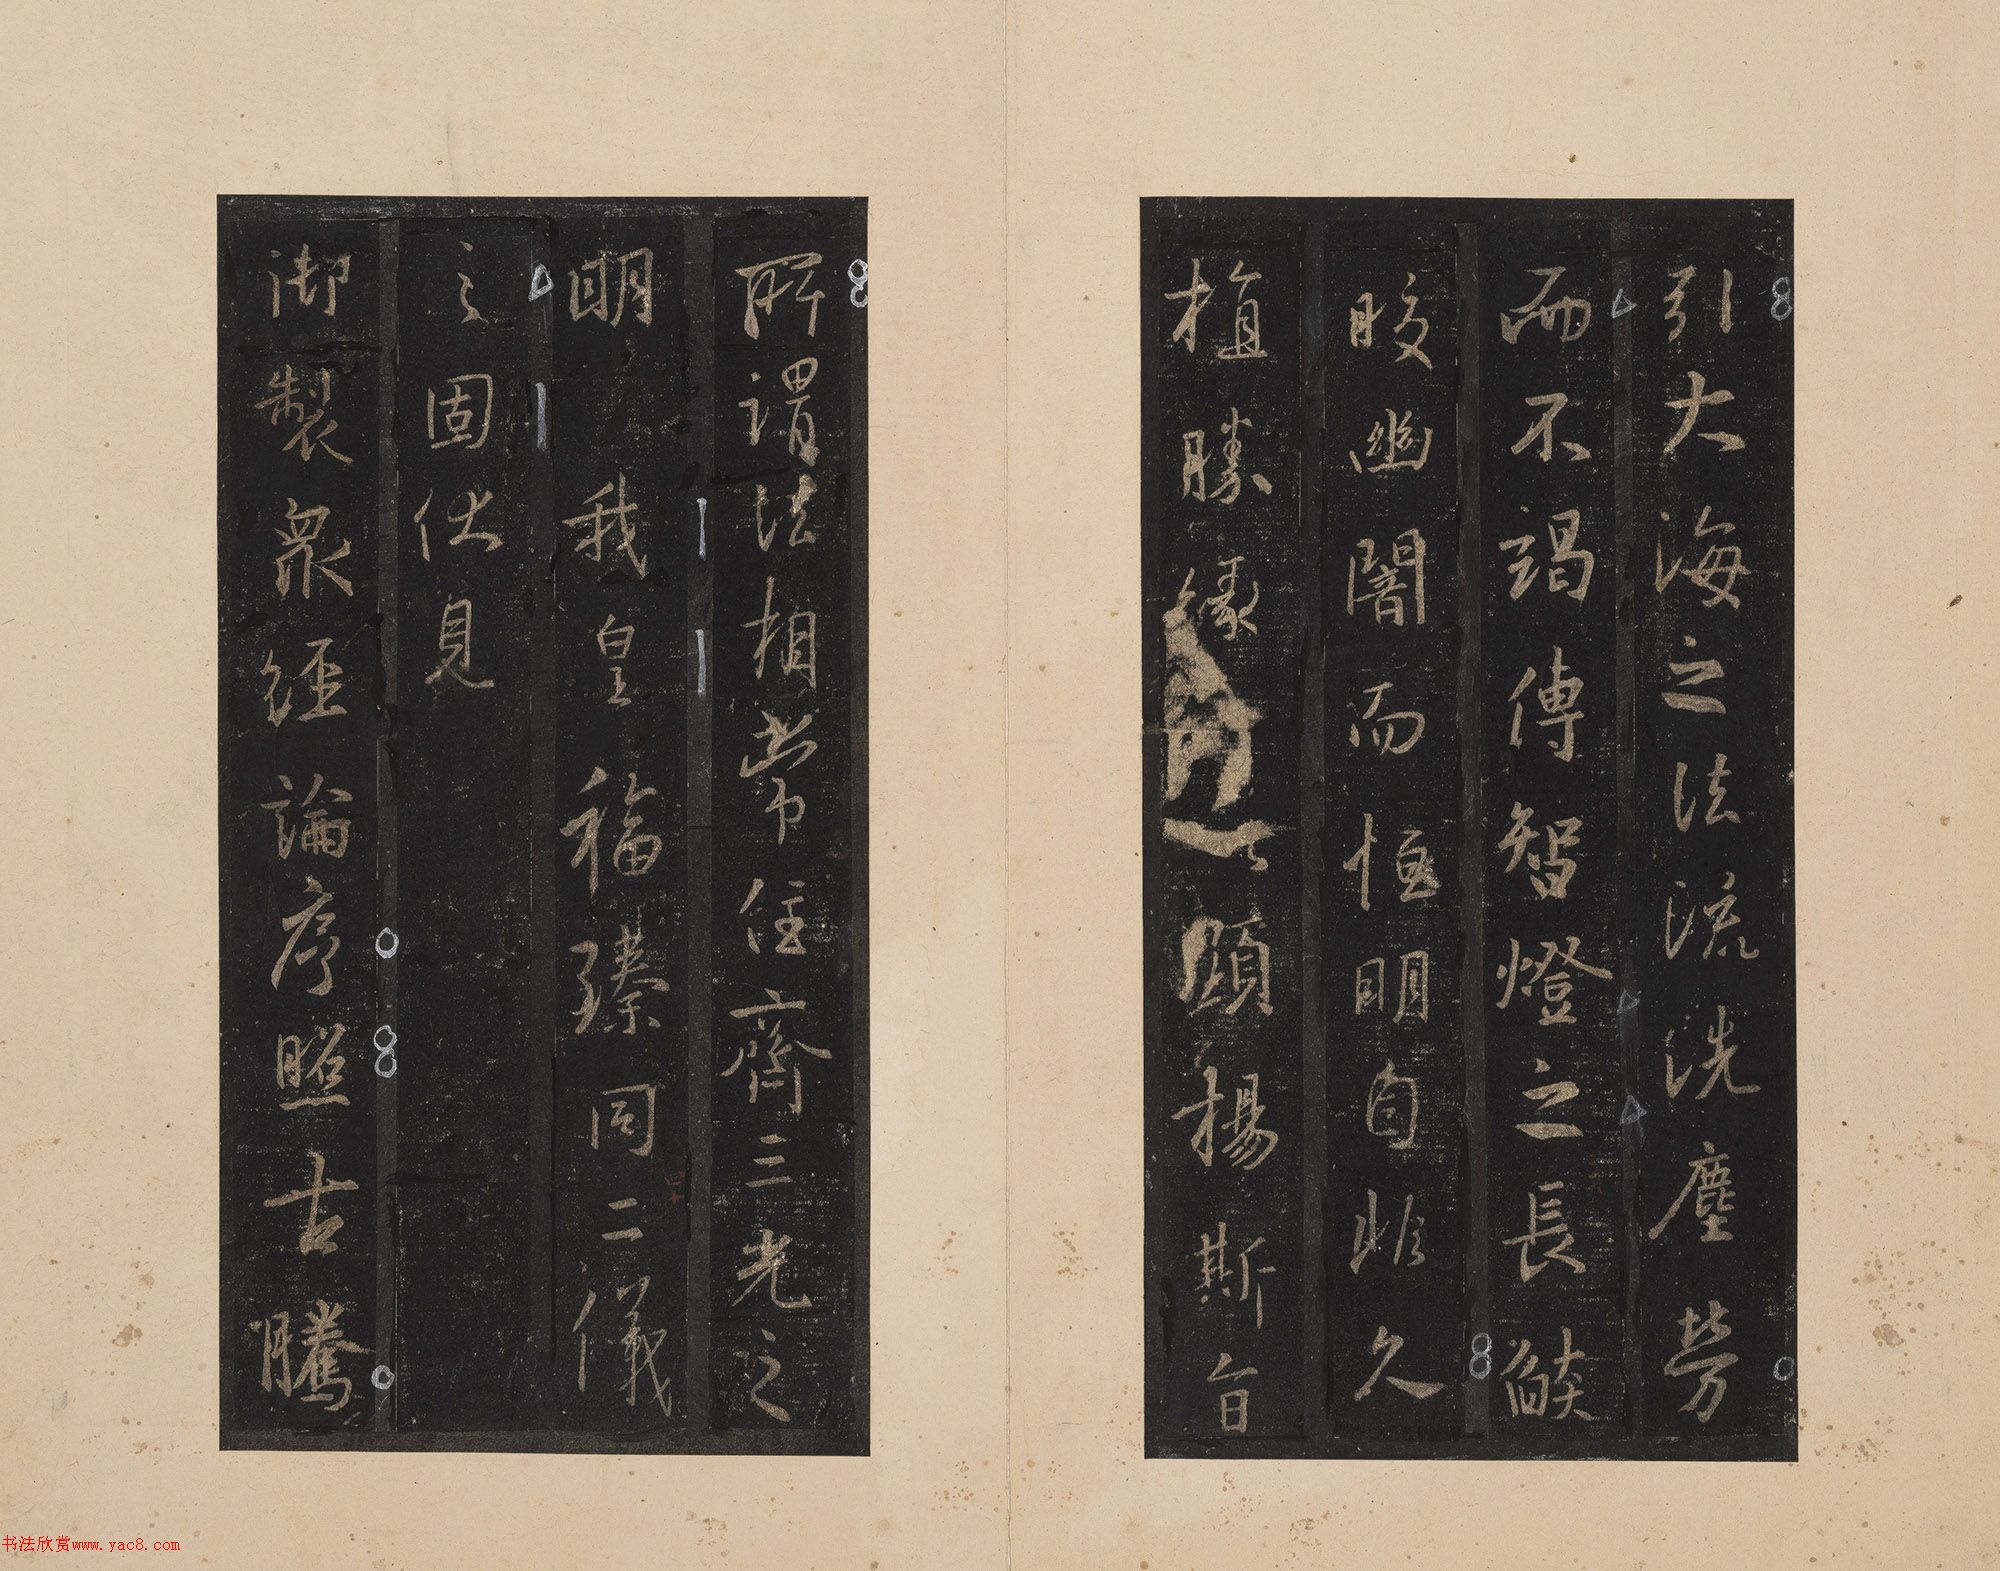 引大海之法流洗塵勞
而不竭傳智燈之長焰
皎幽闇而恒明自非久
植勝緣何以顯揚斯旨
所謂法相常住齊三光之
明我皇福臻同二儀
之固伏見
御製眾經論序照古騰
书法欣赏www.yac8.com